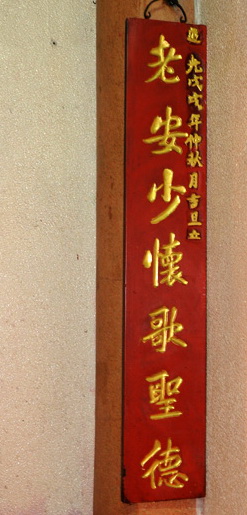 道光戊戌年仲秋月吉旦立
老安少懷歌聖德